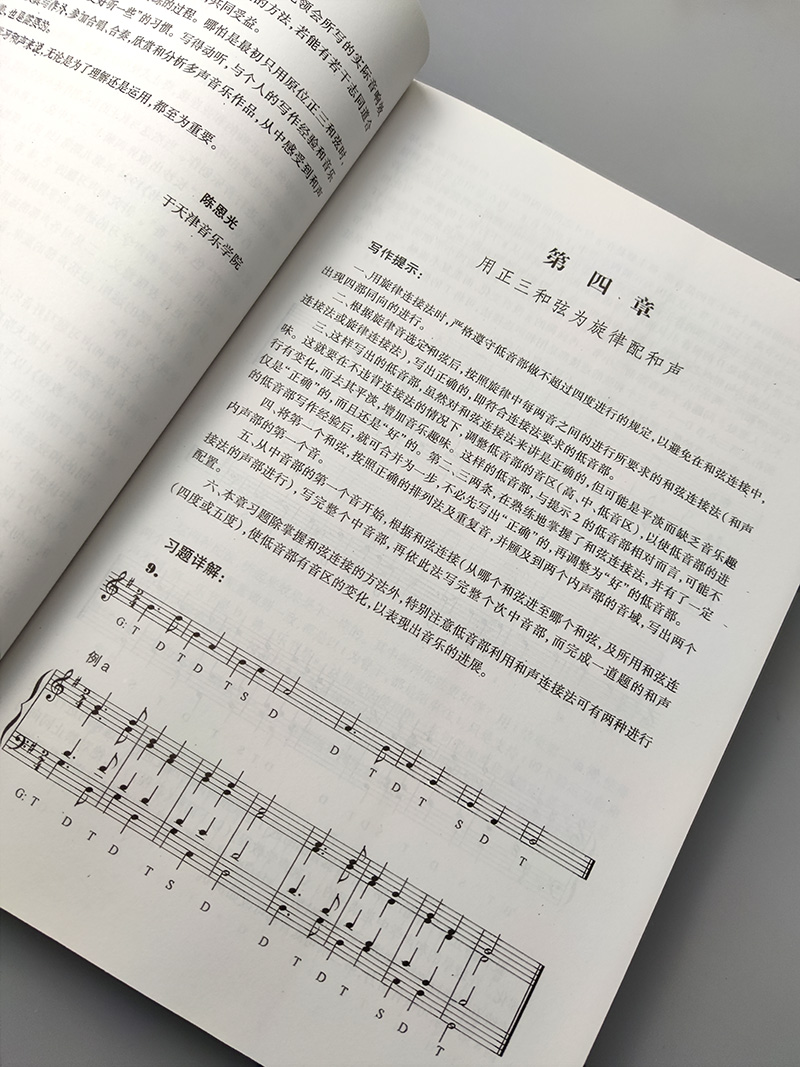 领会所写的实际音响效
的方法，若能有若干志同道合
共同受益。
的过程。哪怕是最初只用原位正三和弦时，
好听一些”的习惯。写得动听，与个人的写作经验和音乐
参加合唱、合奏，欣赏和分析多声音乐作品，从中感受到和声
无论是为了理解还是运用，都至为重要。
陈恩光
于天津音乐学院
第四章
用正三和弦为旋律配和声
写作提示：
一、用旋律连接法时，严格遵守低音部做不超过四度进行的规定，以避免在和弦连接中，
出现四部同向的进行。
二、根据旋律音选定和弦后，按照旋律中每两音之间的进行所要求的和弦连接法（和声
连接法或旋律连接法），写出正确的，即符合连接法要求的低音部。
三、这样写出的低音部，虽然对和弦连接法来讲是正确的，但可能是平淡而缺乏音乐趣
味。这就要在不违背连接法的情况下，调整低音部的音区（高、中、低音区），以使低音部的进
行有变化，而去其平淡，增加音乐趣味。这样的低音部，与提示2的低音部相对而言，可能不
仅是“正确”的，而且还是“好”的。第二、三两条，在熟练地掌握了和弦连接法，并有了一定
的低音部写作经验后，就可合并为一步，不必先写出“正确”的，再调整为“好”的低音部。
四、将第一个和弦，按照正确的排列法及重复音，并顾及到两个内声部的音域，写出两个
内声部的第一个音。
五、从中音部的第一个音开始，根据和弦连接（从哪个和弦进至哪个和弦，及所用和弦连
接法的声部进行），写完整个中音部，再依此法写完整个次中音部，而完成一道题的和声
配置。
六、本章习题除掌握和弦连接的方法外，特别注意低音部利用和声连接法可有两种进行
（四度或五度），使低音部有音区的变化，以表现出音乐的进展。
习题详解：
9.
G: T D T D T S D D T D T S D T
例a
G: T D T D T S D D T D T S D T